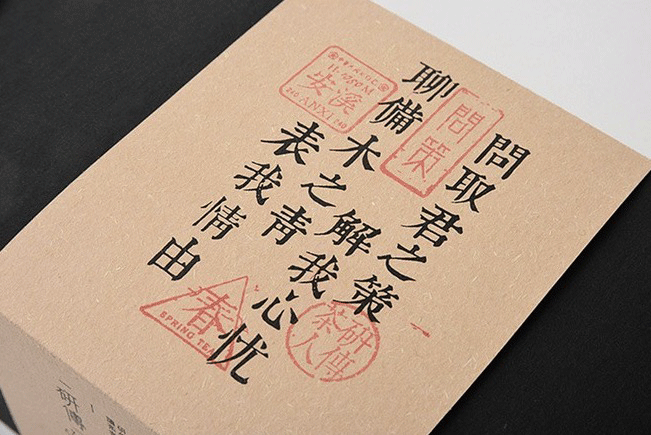 問取君之策
解我心忧
聊備木之青
表我情由
問策
安溪
ANXI
春
SPRING TEA
研傳茶人
研傳